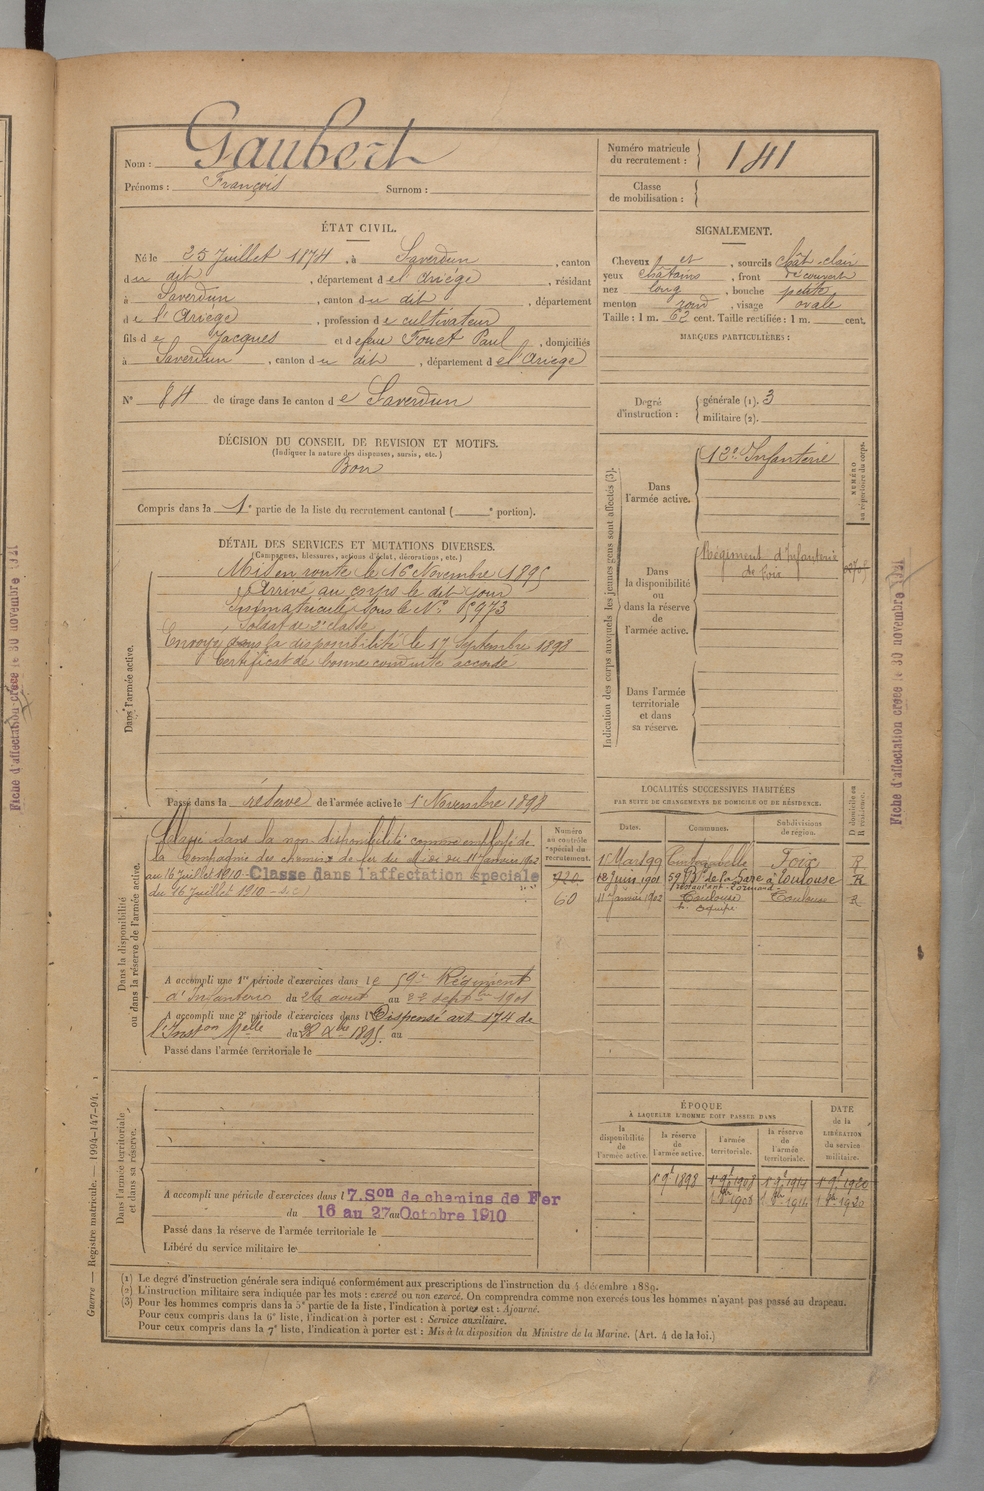 Nom : Gaubert
Prénoms : François Surnom :
Numéro matricule du recrutement : 141
Classe de mobilisation :
ÉTAT CIVIL.
Né le 25 Juillet 1874, à Saverdun, canton
du dit, département de l'Ariège, résidant
à Saverdun, canton du dit, département
de l'Ariège, profession de cultivateur
fils de Jacques et de Fouet Paul, domiciliés
à Saverdun, canton du dit, département de l'Ariège
N° 84 de tirage dans le canton de Saverdun
DÉCISION DU CONSEIL DE REVISION ET MOTIFS.
(Indiquer la nature des dispenses, sursis, etc.)
Bon
Compris dans la 1e partie de la liste du recrutement cantonal ( e portion).
SIGNALEMENT.
Cheveux et, sourcils chât-clair
yeux châtains, front découvert
nez long, bouche petite
menton rond, visage ovale
Taille : 1 m. 62 cent. Taille rectifiée : 1 m. cent.
MARQUES PARTICULIÈRES :
Degré d'instruction : générale (1). 3
militaire (2).
Indication des corps auxquels les jeunes gens sont affectés (3).
NUMÉRO au répertoire du corps.
Dans l'armée active.
12e Infanterie
Dans la disponibilité ou dans la réserve de l'armée active.
Régiment d'Infanterie
de Foix
Dans l'armée territoriale et dans sa réserve.
DÉTAIL DES SERVICES ET MUTATIONS DIVERSES.
(Campagnes, blessures, actions d'éclat, décorations, etc.)
Dans l'armée active.
Mis en route le 16 Novembre 1895
Arrivé au corps le dit jour
Immatriculé sous le N° 5973
Soldat de 2e classe
Envoyé dans la disponibilité le 17 Septembre 1898
Certificat de bonne conduite accordé
Passé dans la réserve de l'armée active le 1 Novembre 1898
Dans la disponibilité ou dans la réserve de l'armée active.
Numéro au contrôle spécial du recrutement.
Classé dans la non disponibilité comme employé de
la Compagnie des chemins de fer du Midi du 11 Janvier 1902
au 16 Juillet 1910 - Classé dans l'affectation spéciale
du 16 Juillet 1910
720
60
A accompli une 1re période d'exercices dans le 59e Régiment
d'Infanterie du 26 août au 22 sept bre 1901
A accompli une 2e période d'exercices dans l Dispensé art. 174 de
l'Inston Melle du 28 Xbre 1895 au
Passé dans l'armée territoriale le
LOCALITÉS SUCCESSIVES HABITÉES
PAR SUITE DE CHANGEMENTS DE DOMICILE OU DE RÉSIDENCE.
Dates. Communes. Subdivisions de région. D domicile ou R résidence.
1 Mars 99 Foix R
18 Juin 1901 59 Bd de la Gare à Toulouse R
11 Janvier 1902 Toulouse Toulouse R
h. équipe
Dans l'armée territoriale et dans sa réserve.
A accompli une période d'exercices dans l 7. Son de chemins de Fer
du 16 au 27 au Octobre 1910
Passé dans la réserve de l'armée territoriale le
Libéré du service militaire le
ÉPOQUE
À LAQUELLE L'HOMME DOIT PASSER DANS
la disponibilité de l'armée active. la réserve de l'armée active. l'armée territoriale. la réserve de l'armée territoriale.
DATE de la LIBÉRATION du service militaire.
1 9bre 1898 1 9bre 1908 1 9bre 1914 1 9bre 1920
1 8bre 1908 1 8bre 1914 1 8bre 1920
(1) Le degré d'instruction générale sera indiqué conformément aux prescriptions de l'instruction du 4 décembre 1889.
(2) L'instruction militaire sera indiquée par les mots : exercé ou non exercé. On comprendra comme non exercés tous les hommes n'ayant pas passé au drapeau.
(3) Pour les hommes compris dans la 5e partie de la liste, l'indication à porter est : Ajourné.
Pour ceux compris dans la 6e liste, l'indication à porter est : Service auxiliaire.
Pour ceux compris dans la 7e liste, l'indication à porter est : Mis à la disposition du Ministre de la Marine. (Art. 4 de la loi.)
Guerre — Registre matricule. — 1994-147-94.
Fiche d'affectation créée le 30 novembre 1921
Fiche d'affectation créée le 30 novembre 1921